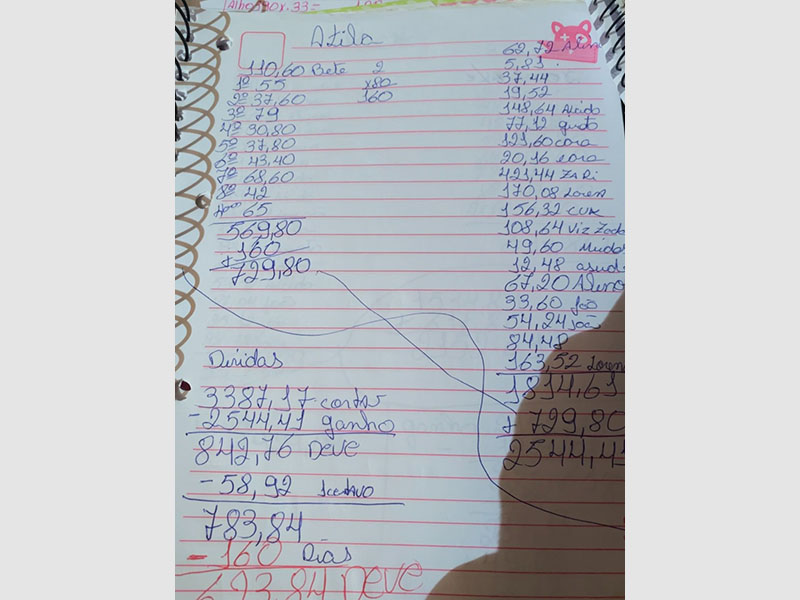 Atila
110,60 Bete
1º 55
2º 37,60
3º 79
4º 30,80
5º 37,80
6º 43,40
7º 68,60
8º 42
65
569,80
+160
729,80
2
x80
160
62,72
5,81
37,44
19,52
148,64
77,12
121,60 cora
20,16 cora
421,44
170,08 Loren
156,32
108,64 Viz
49,60
12,48
67,20
33,60 João
54,24 João
84,48
163,52 Loren
1814,61
+ 729,80
2544,41
Dividas
3387,17 contas
-2544,41 ganho
842,76 Deve
-58,92
783,84
- 160 Dias
623,84 Deve